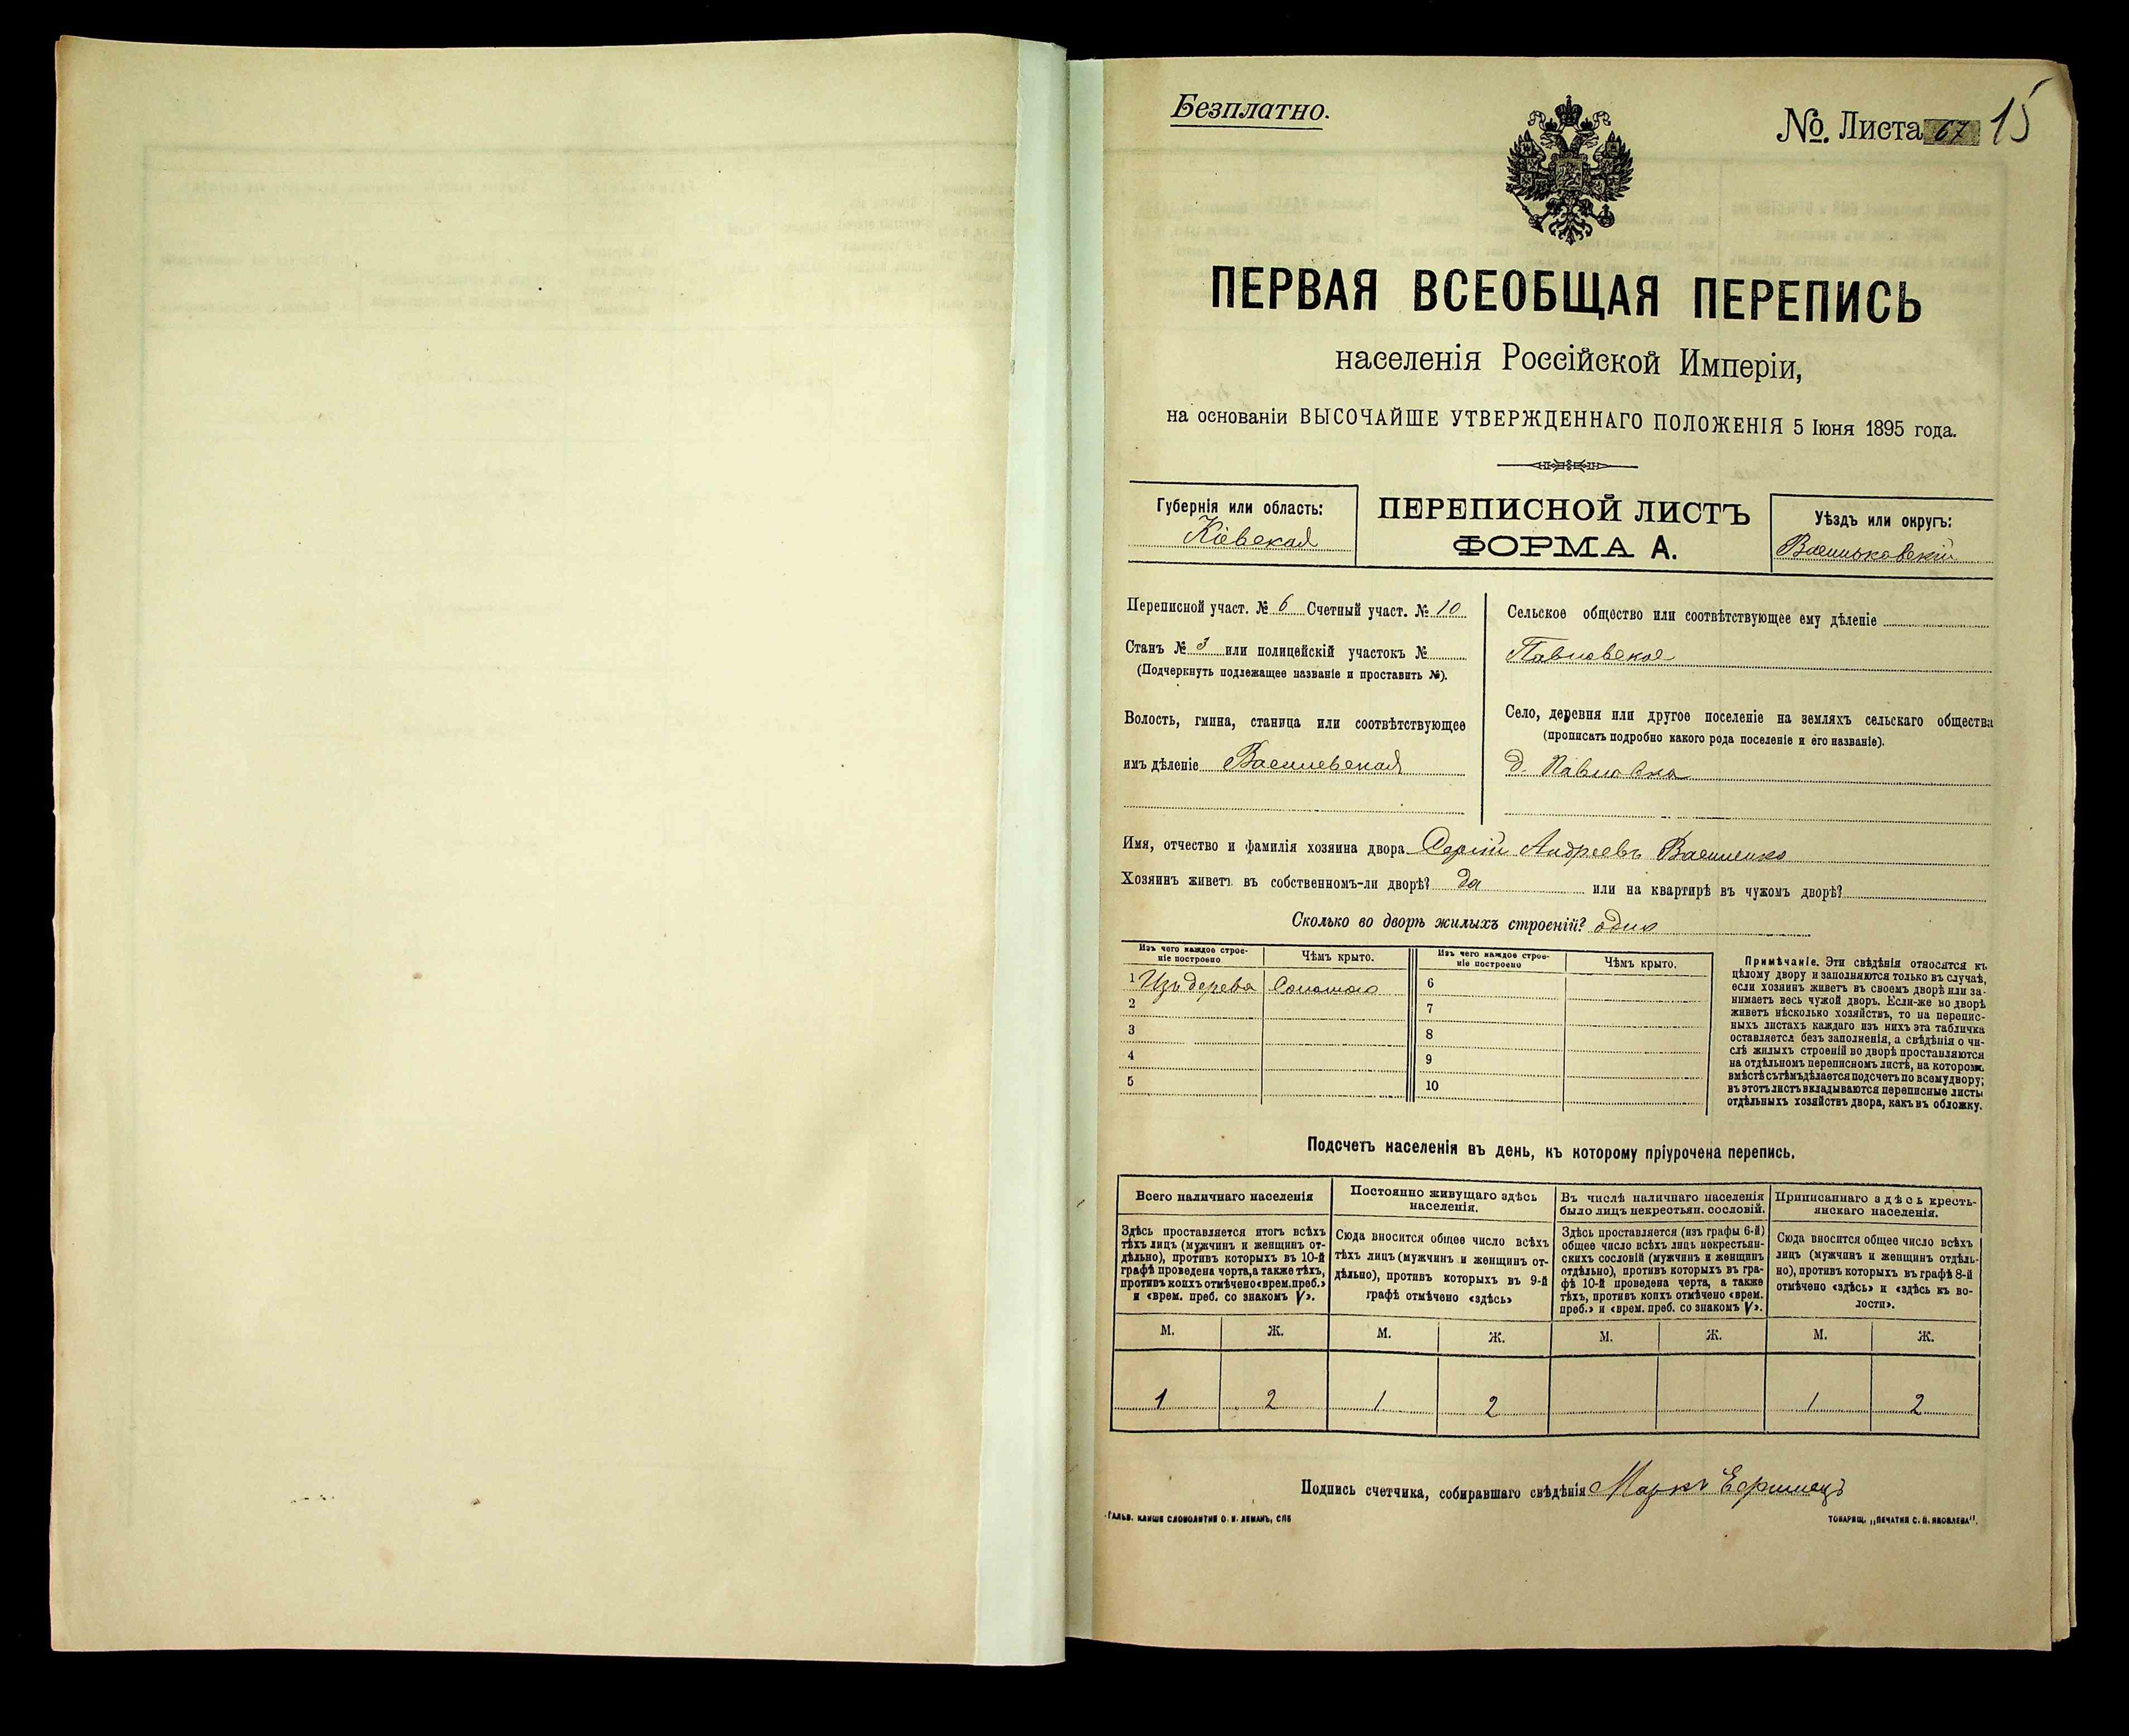 Безплатно.
№ Листа 67 15
ПЕРВАЯ ВСЕОБЩАЯ ПЕРЕПИСЬ
населенія Россійской Имперіи,
на основаніи ВЫСОЧАЙШЕ УТВЕРЖДЕННАГО ПОЛОЖЕНІЯ 5 Іюня 1895 года.
Губернія или область:
Кіевская
ПЕРЕПИСНОЙ ЛИСТЪ
ФОРМА А.
Уѣздъ или округъ:
Васильковскій
Переписной участ. № 6 Счетный участ. № 10
Станъ № 3 или полицейскій участокъ №
(Подчеркнуть подлежащее названіе и проставить №).
Волость, гмина, станица или соотвѣтствующее
имъ дѣленіе Василевская
Сельское общество или соотвѣтствующее ему дѣленіе
Павловское
Село, деревня или другое поселеніе на земляхъ сельскаго общества
(прописать подробно какого рода поселеніе и его названіе).
д. Павловка
Имя, отчество и фамилія хозяина двора Сергій Андреевъ Василенко
Хозяинъ живетъ въ собственномъ-ли дворѣ? да или на квартирѣ въ чужомъ дворѣ?
Сколько во дворѣ жилыхъ строеній? одно
Изъ чего каждое строе-
ніе построено
Чѣмъ крыто.
1 Изъ дерева Соломою
2
3
4
5
Изъ чего каждое строе-
ніе построено
Чѣмъ крыто.
6
7
8
9
10
Примѣчаніе. Эти свѣдѣнія относятся къ
цѣлому двору и заполняются только въ случаѣ,
если хозяинъ живетъ въ своемъ дворѣ или за-
нимаетъ весь чужой дворъ. Если-же во дворѣ
живетъ нѣсколько хозяйствъ, то на перепис-
ныхъ листахъ каждаго изъ нихъ эта табличка
оставляется безъ заполненія, а свѣдѣнія о чи-
слѣ жилыхъ строеній во дворѣ проставляются
на отдѣльномъ переписномъ листѣ, на которомъ
вмѣстѣ съ тѣмъ дѣлается подсчетъ по всему двору;
въ этотъ листъ вкладываются переписные листы
отдѣльныхъ хозяйствъ двора, какъ въ обложку.
Подсчетъ населенія въ день, къ которому пріурочена перепись.
Всего наличнаго населенія
Здѣсь проставляется итогъ всѣхъ
тѣхъ лицъ (мужчинъ и женщинъ от-
дѣльно), противъ которыхъ въ 10-й
графѣ проведена черта, а также тѣхъ,
противъ коихъ отмѣчено «врем. преб.»
и «врем. преб. со знакомъ V».
Постоянно живущаго здѣсь
населенія.
Сюда вносится общее число всѣхъ
тѣхъ лицъ (мужчинъ и женщинъ от-
дѣльно), противъ которыхъ въ 9-й
графѣ отмѣчено «здѣсь»
Въ числѣ наличнаго населенія
было лицъ некрестьян. сословій.
Здѣсь проставляется (изъ графы 6-й)
общее число всѣхъ лицъ некрестьян-
скихъ сословій (мужчинъ и женщинъ
отдѣльно), противъ которыхъ въ гра-
фѣ 10-й проведена черта, а также
тѣхъ, противъ коихъ отмѣчено «врем.
преб.» и «врем. преб. со знакомъ V».
Приписаннаго здѣсь кресть-
янскаго населенія.
Сюда вносится общее число всѣхъ
лицъ (мужчинъ и женщинъ отдѣль-
но), противъ которыхъ въ графѣ 8-й
отмѣчено «здѣсь» и «здѣсь къ во-
лости».
М. Ж. М. Ж. М. Ж. М. Ж.
1 2 1 2 1 2
Подпись счетчика, собиравшаго свѣдѣнія Маркъ
ГАЛЬВ. КЛИШЕ СЛОВОЛИТНИ О. И. ЛЕМАНЪ, СПБ
ТОВАРИЩ. „ПЕЧАТНЯ С. П. ЯКОВЛЕВА".